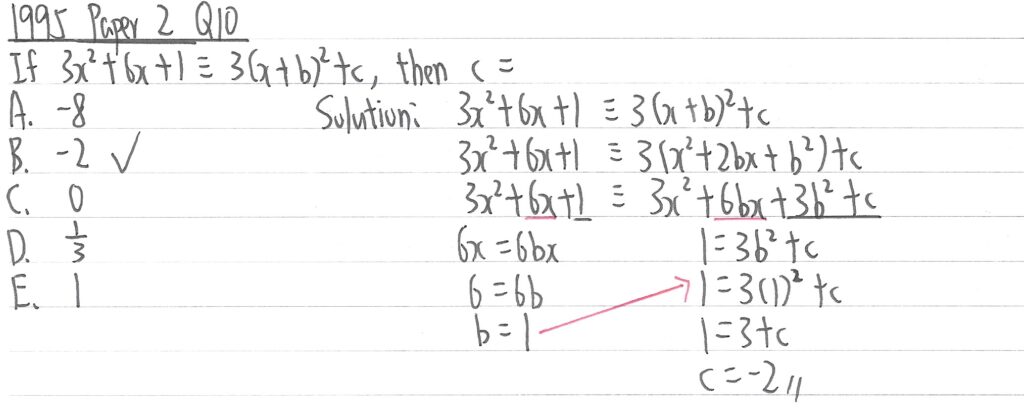 1995 Paper 2 Q10
If 3x²+6x+1 ≡ 3(x+b)²+c, then c =
A. -8
B. -2 ✓
C. 0
D. 1/3
E. 1
Solution: 3x²+6x+1 ≡ 3(x+b)²+c
3x²+6x+1 ≡ 3(x²+2bx+b²)+c
3x²+6x+1 ≡ 3x²+6bx+3b²+c
6x=6bx
6=6b
b=1
1=3b²+c
1=3(1)²+c
1=3+c
c=-2//